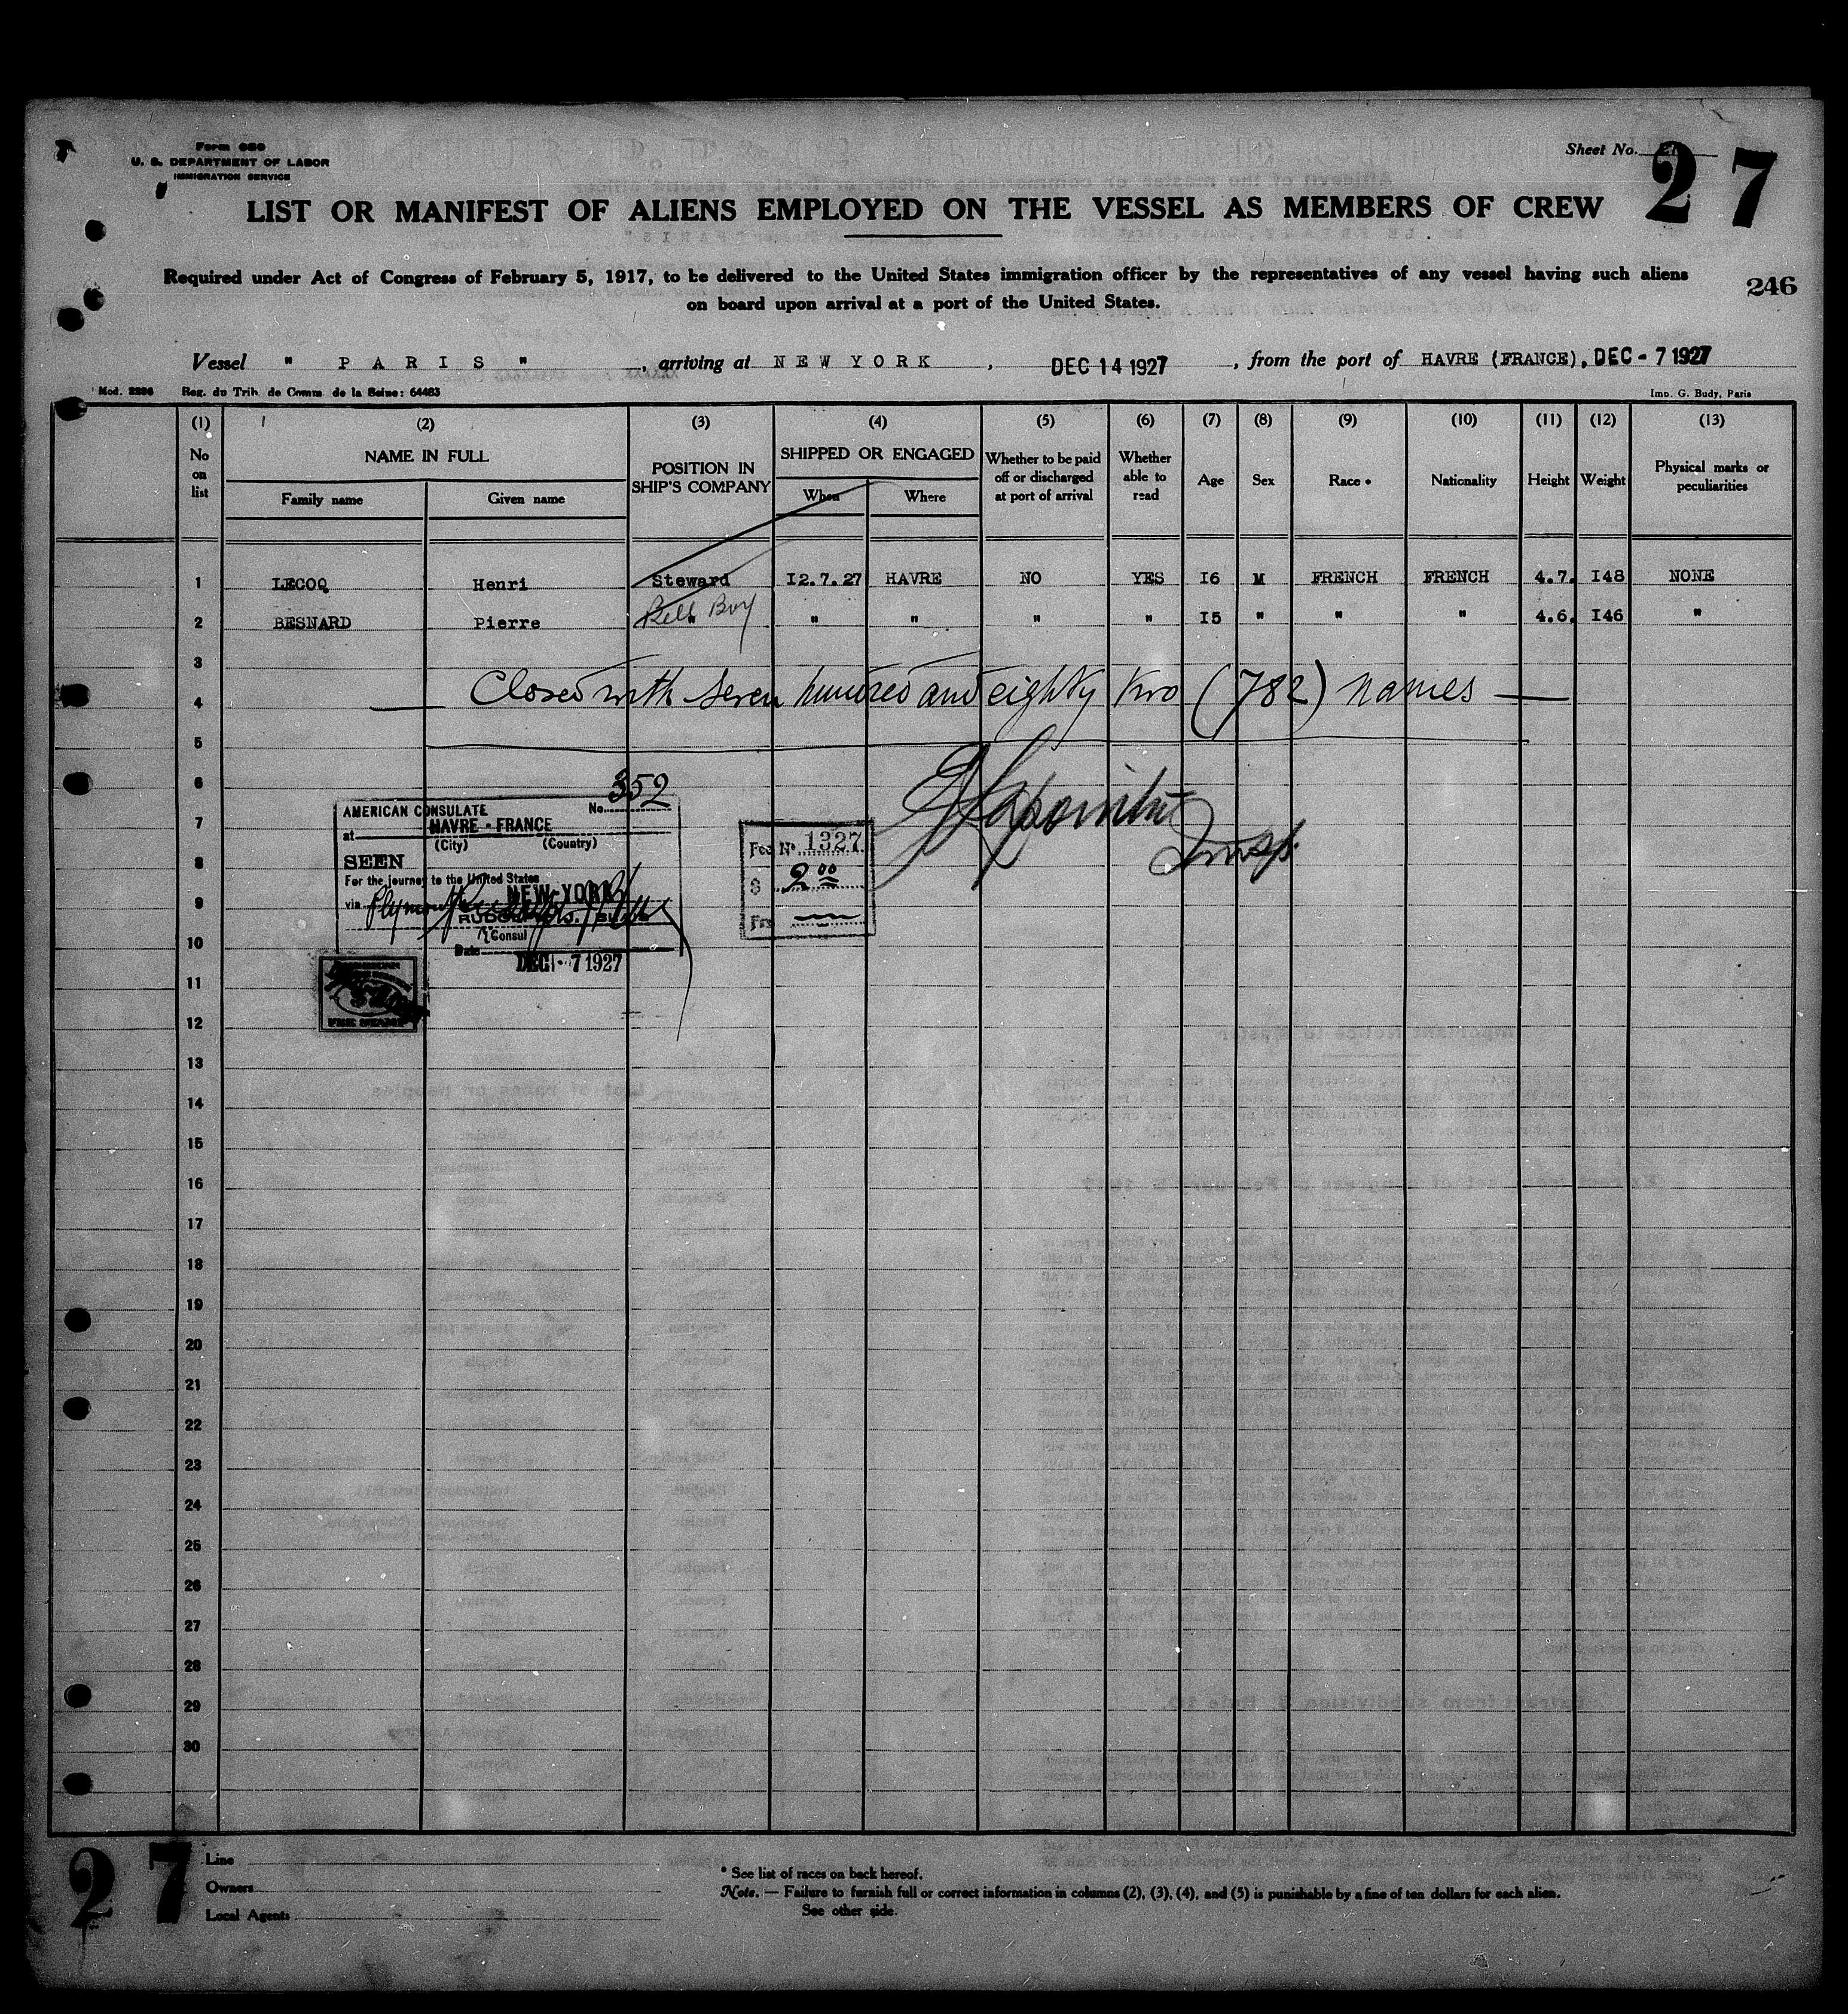 Form 680
U. S. DEPARTMENT OF LABOR
IMMIGRATION SERVICE
Sheet No. 27
27
LIST OR MANIFEST OF ALIENS EMPLOYED ON THE VESSEL AS MEMBERS OF CREW
Required under Act of Congress of February 5, 1917, to be delivered to the United States immigration officer by the representatives of any vessel having such aliens
on board upon arrival at a port of the United States.
246
Vessel " PARIS " , arriving at NEW YORK , DEC 14 1927 , from the port of HAVRE (FRANCE), DEC - 7 1927
Mod. 2286 Reg. du Trib. de Comm. de la Seine: 64483 Imp. G. Budy, Paris
(1) (2) (3) (4) (5) (6) (7) (8) (9) (10) (11) (12) (13)
No on list NAME IN FULL POSITION IN SHIP'S COMPANY SHIPPED OR ENGAGED Whether to be paid off or discharged at port of arrival Whether able to read Age Sex Race * Nationality Height Weight Physical marks or peculiarities
Family name Given name When Where
1 LECOQ Henri Steward 12.7.27 HAVRE NO YES I6 M FRENCH FRENCH 4.7. I48 NONE
2 BESNARD Pierre " Bell Boy " " " " I5 " " " 4.6. I46 "
3
4 Closed with seven hundred and eighty two (782) names
5
6
7
8
9
10
11
12
13
14
15
16
17
18
19
20
21
22
23
24
25
26
27
28
29
30
AMERICAN CONSULATE No. 352
at HAVRE - FRANCE
(City) (Country)
SEEN
For the journey to the United States
via Plymouth NEW-YORK
Consul
Date DEC - 7 1927
Fee No. 1327
$ 2 00
Frs
Insp.
27
Line
Owners
Local Agents
* See list of races on back hereof.
Note. — Failure to furnish full or correct information in columns (2), (3), (4), and (5) is punishable by a fine of ten dollars for each alien.
See other side.